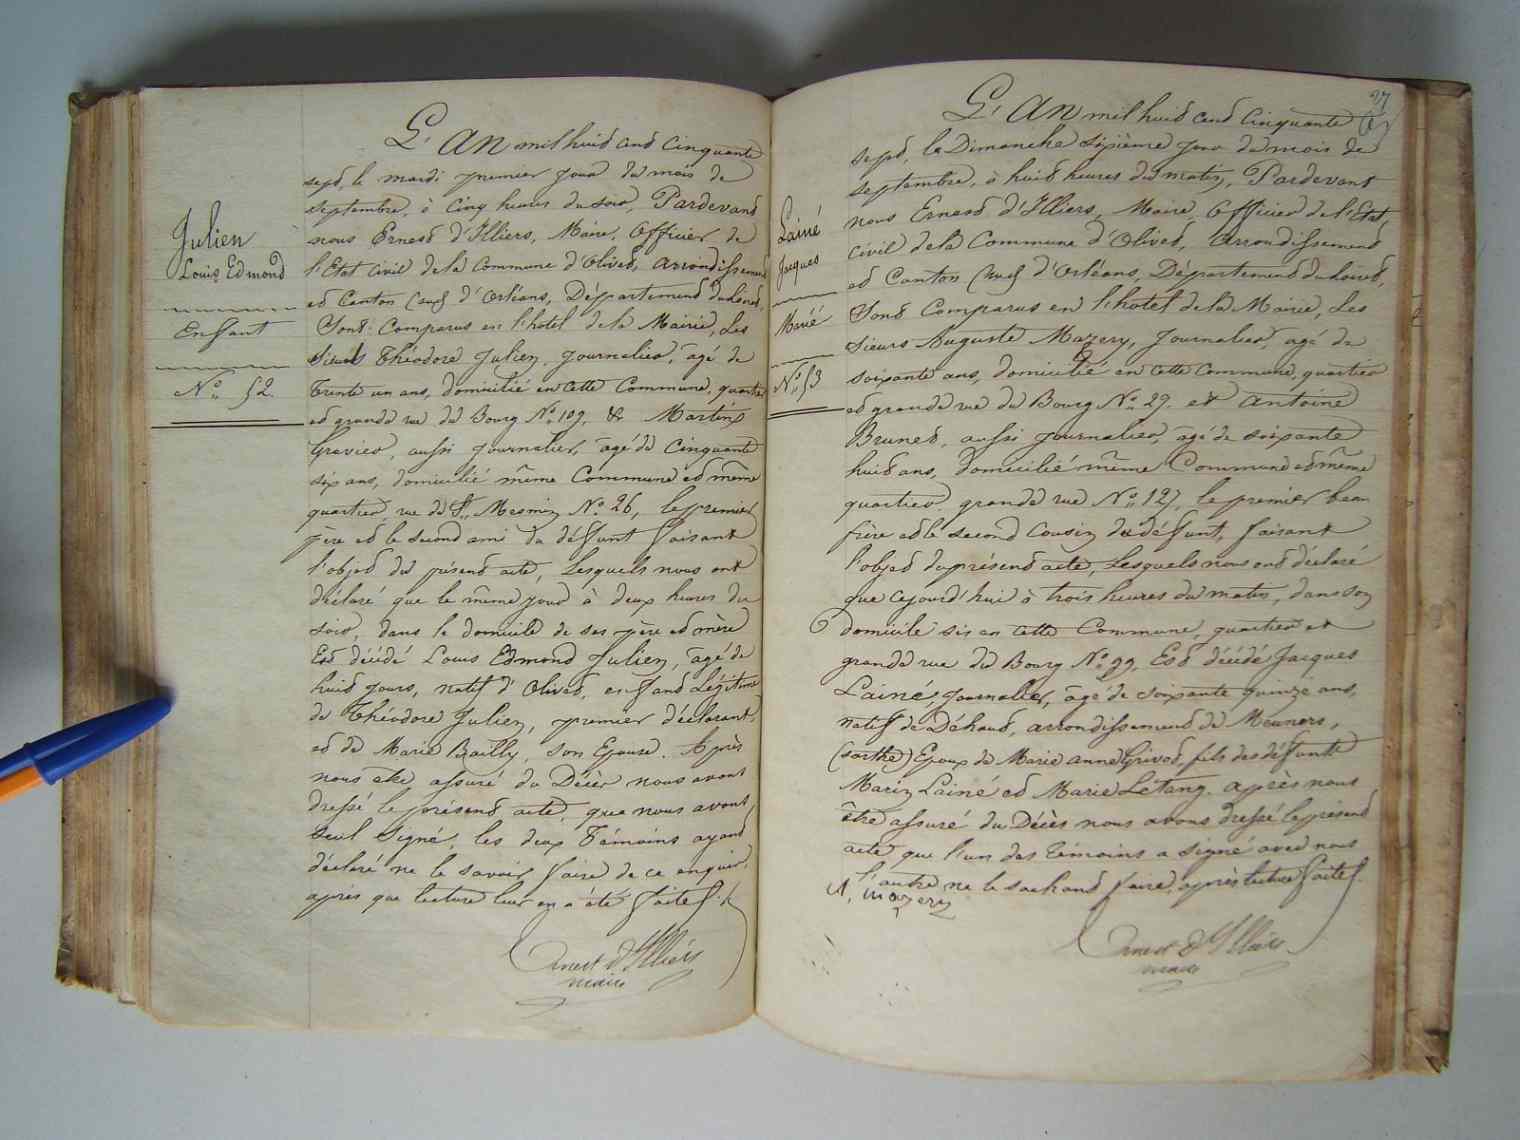 Julien
Louis Edmond
Enfant
N° 52.
L'An mil huit cent Cinquante
sept, le mardi premier jour du mois de
septembre, à Cinq heures du soir, Pardevant
nous Ernest d'Illiers, Maire, Officier de
l'Etat Civil de la Commune d'Olivet, arrondissement
et Canton Sud d'Orléans, Département du Loiret,
Sont Comparus en l'hôtel de la Mairie, Les
Sieurs Théodore Julien, Journalier, agé de
trente un ans, domicilié en cette Commune, quartier
et grande rue du Bourg N° 109, & Martin
Gravier, aussi Journalier, âgé de Cinquante
six ans, domicilié même Commune et même
quartier, rue de St Mesmin N° 26, le premier
père et le second ami du défunt faisant
l'objet du présent acte, Lesquels nous ont
déclaré que le même jour à deux heures du
soir, dans le domicile de ses père et mère
Est décédé Louis Edmond Julien, âgé de
huit jours, natif d'Olivet, enfant Légitime
de Théodore Julien, premier déclarant,
et de Marie Bailly, son Epouse. Après
nous être assuré du Décès nous avons
dressé le présent acte, que nous avons
seul Signé, les deux Témoins ayant
déclaré ne le savoir faire de ce enquis,
après que lecture leur en a été faite.
Ernest d'Illiers
maire
27
Lainé
Jacques
Marié
N° 53
L'An mil huit cent Cinquante
sept, le Dimanche sixième jour du mois de
septembre, à huit heures du matin, Pardevant
nous Ernest d'Illiers, Maire, Officier de l'Etat
Civil de la Commune d'Olivet, Arrondissement
et Canton Sud d'Orléans, Département du Loiret,
Sont Comparus en l'hôtel de la Mairie, Les
Sieurs Auguste Mazery, Journalier, agé de
soixante ans, domicilié en cette Commune, quartier
et grande rue du Bourg N° 29. et Antoine
Brunet, aussi Journalier, âgé de soixante
huit ans, domicilié même Commune et même
quartier, grande rue N° 127, le premier beau
frère et le second Cousin du défunt, faisant
l'objet du présent acte, Lesquels nous ont déclaré
que cejourd'hui à trois heures du matin, dans son
domicile sis en cette Commune, quartier et
grande rue du Bourg N° 99, Est décédé Jacques
Lainé, Journalier, âgé de soixante quinze ans,
natif de Déhaut, arrondissement de Mamers,
(Sarthe) Epoux de Marie anne Grivot, fils des défunts
Marin Lainé et Marie Letang. après nous
être assuré du Décès nous avons dressé le présent
acte que l'un des témoins a signé avec nous
l'autre ne le sachant faire, après lecture faite.
A, mazery
Ernest d'Illiers
maire